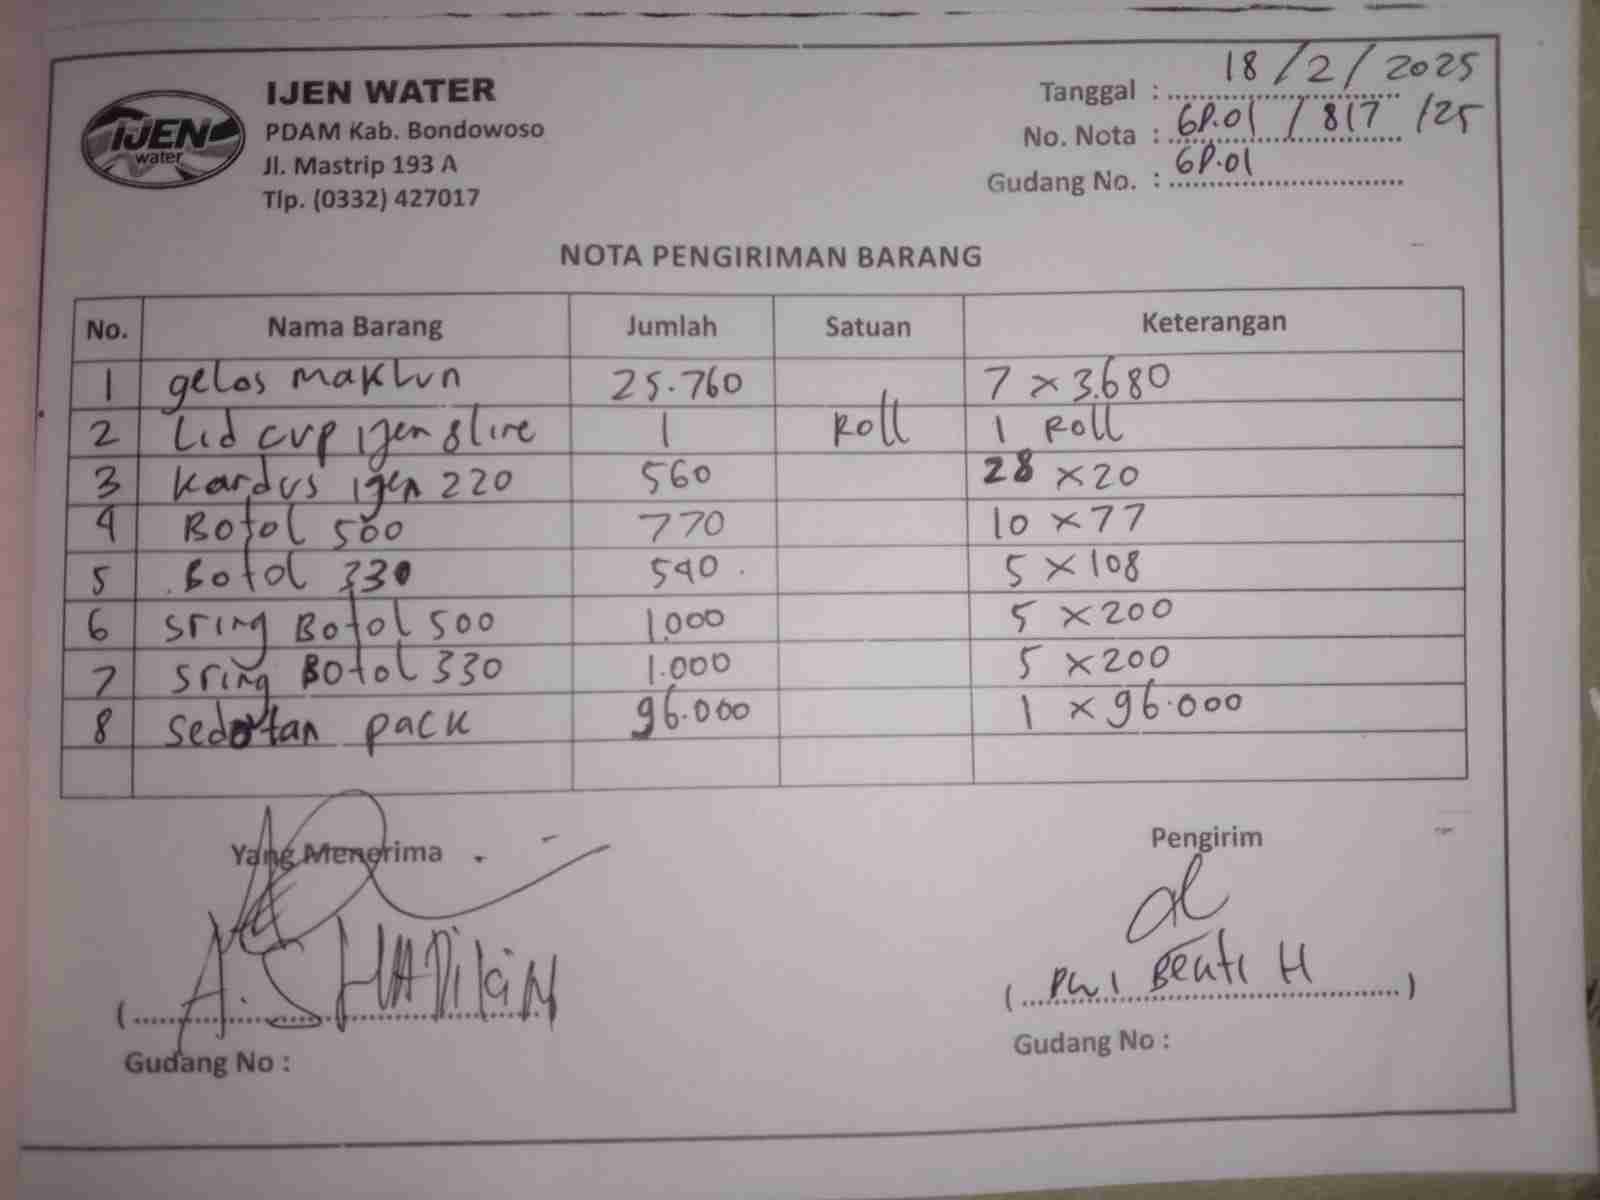 IJEN
water
IJEN WATER
PDAM Kab. Bondowoso
Jl. Mastrip 193 A
Tlp. (0332) 427017
Tanggal : 18/2/2025
No. Nota : GP.01 / 817 /25
Gudang No. : GP.01
NOTA PENGIRIMAN BARANG
No. Nama Barang Jumlah Satuan Keterangan
1 gelas maklun 25.760 7 x 3.680
2 Lid cup ijen 8 line 1 Roll 1 Roll
3 Kardus ijen 220 560 28 x 20
4 Botol 500 770 10 x 77
5 Botol 330 540 5 x 108
6 Sring Botol 500 1.000 5 x 200
7 Sring Botol 330 1.000 5 x 200
8 Sedotan pack 96.000 1 x 96.000
Yang Menerima
Pengirim
( )
( Dwi H )
Gudang No :
Gudang No :